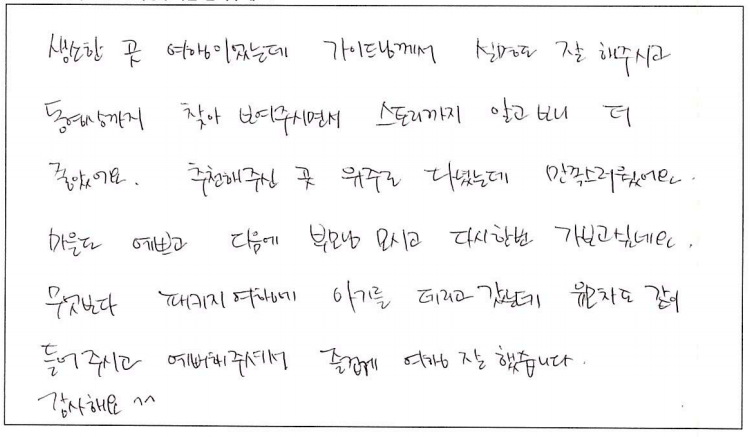 생소한 곳 여행이었는데 가이드님께서 설명도 잘 해주시고
동영상까지 찾아 보여주시면서 스토리까지 알고 보니 더
좋았어요. 추천해주신 곳 위주로 다녔는데 만족스러웠어요.
마을도 예쁘고 다음에 부모님 모시고 다시한번 가보고싶네요.
무엇보다 패키지 여행에 아기를 데리고 갔는데 유모차도 같이
들어 주시고 예뻐해주셔서 즐겁게 여행 잘 했습니다.
감사해요 ^^